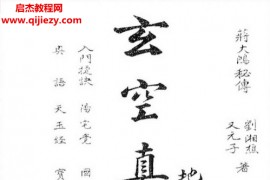 启杰教程网
www.qijiezy.com
蔣大鴻秘傳
劉湘纏 著
又元子
玄空真
地
入門捷訣 陽宅覺
奧語 天玉经 寶